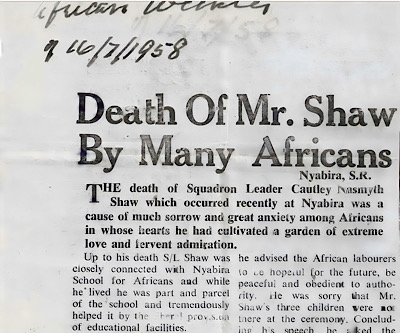 African Weekly
of 16/7/1958
Death Of Mr. Shaw
By Many Africans
Nyabira, S.R.
THE death of Squadron Leader Cautley Nasmyth
Shaw which occurred recently at Nyabira was a
cause of much sorrow and great anxiety among Africans
in whose hearts he had cultivated a garden of extreme
love and fervent admiration.
Up to his death S/L Shaw was
closely connected with Nyabira
School for Africans and while
he lived he was part and parcel
of the school and tremendously
helped it by the provision
of educational facilities.
he advised the African labourers
to be hopeful for the future, be
peaceful and obedient to autho-
rity. He was sorry that Mr.
Shaw's three children were not
there at the ceremony. Conclud-
ing his speech he asked the